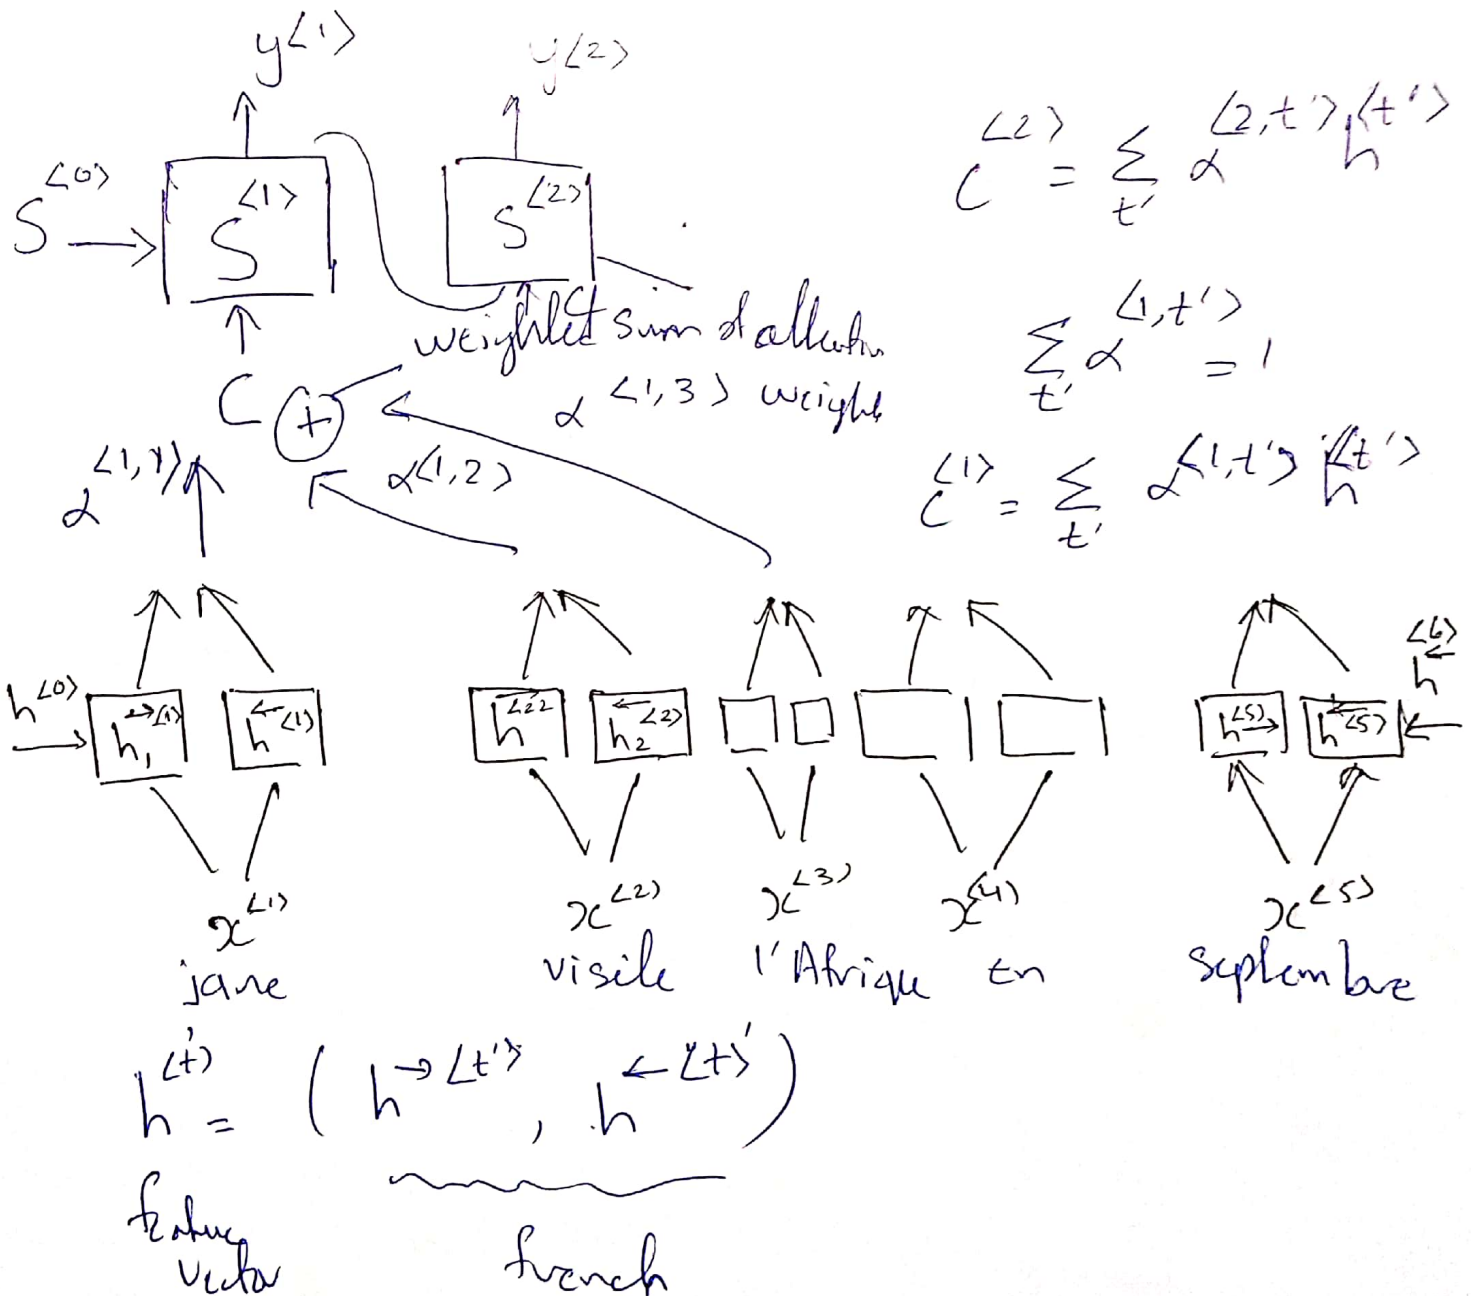 y<1> y<2>
S<0> S<1> S<2>
C<2> = Σt' α<2,t'> h<t'>
weighted sum of attention
α<1,3> weights
Σt' α<1,t'> = 1
C +
α<1,1> α<1,2>
C<1> = Σt' α<1,t'> h<t'>
h<0> h₁→<1> h←<1> h→<2> h₂←<2> h<5>→ h←<5> h←<6>
x<1> x<2> x<3> x<4> x<5>
jane visite l'Afrique en septembre
h<t'> = ( h→<t'> , h←<t>' )
feature
vector french